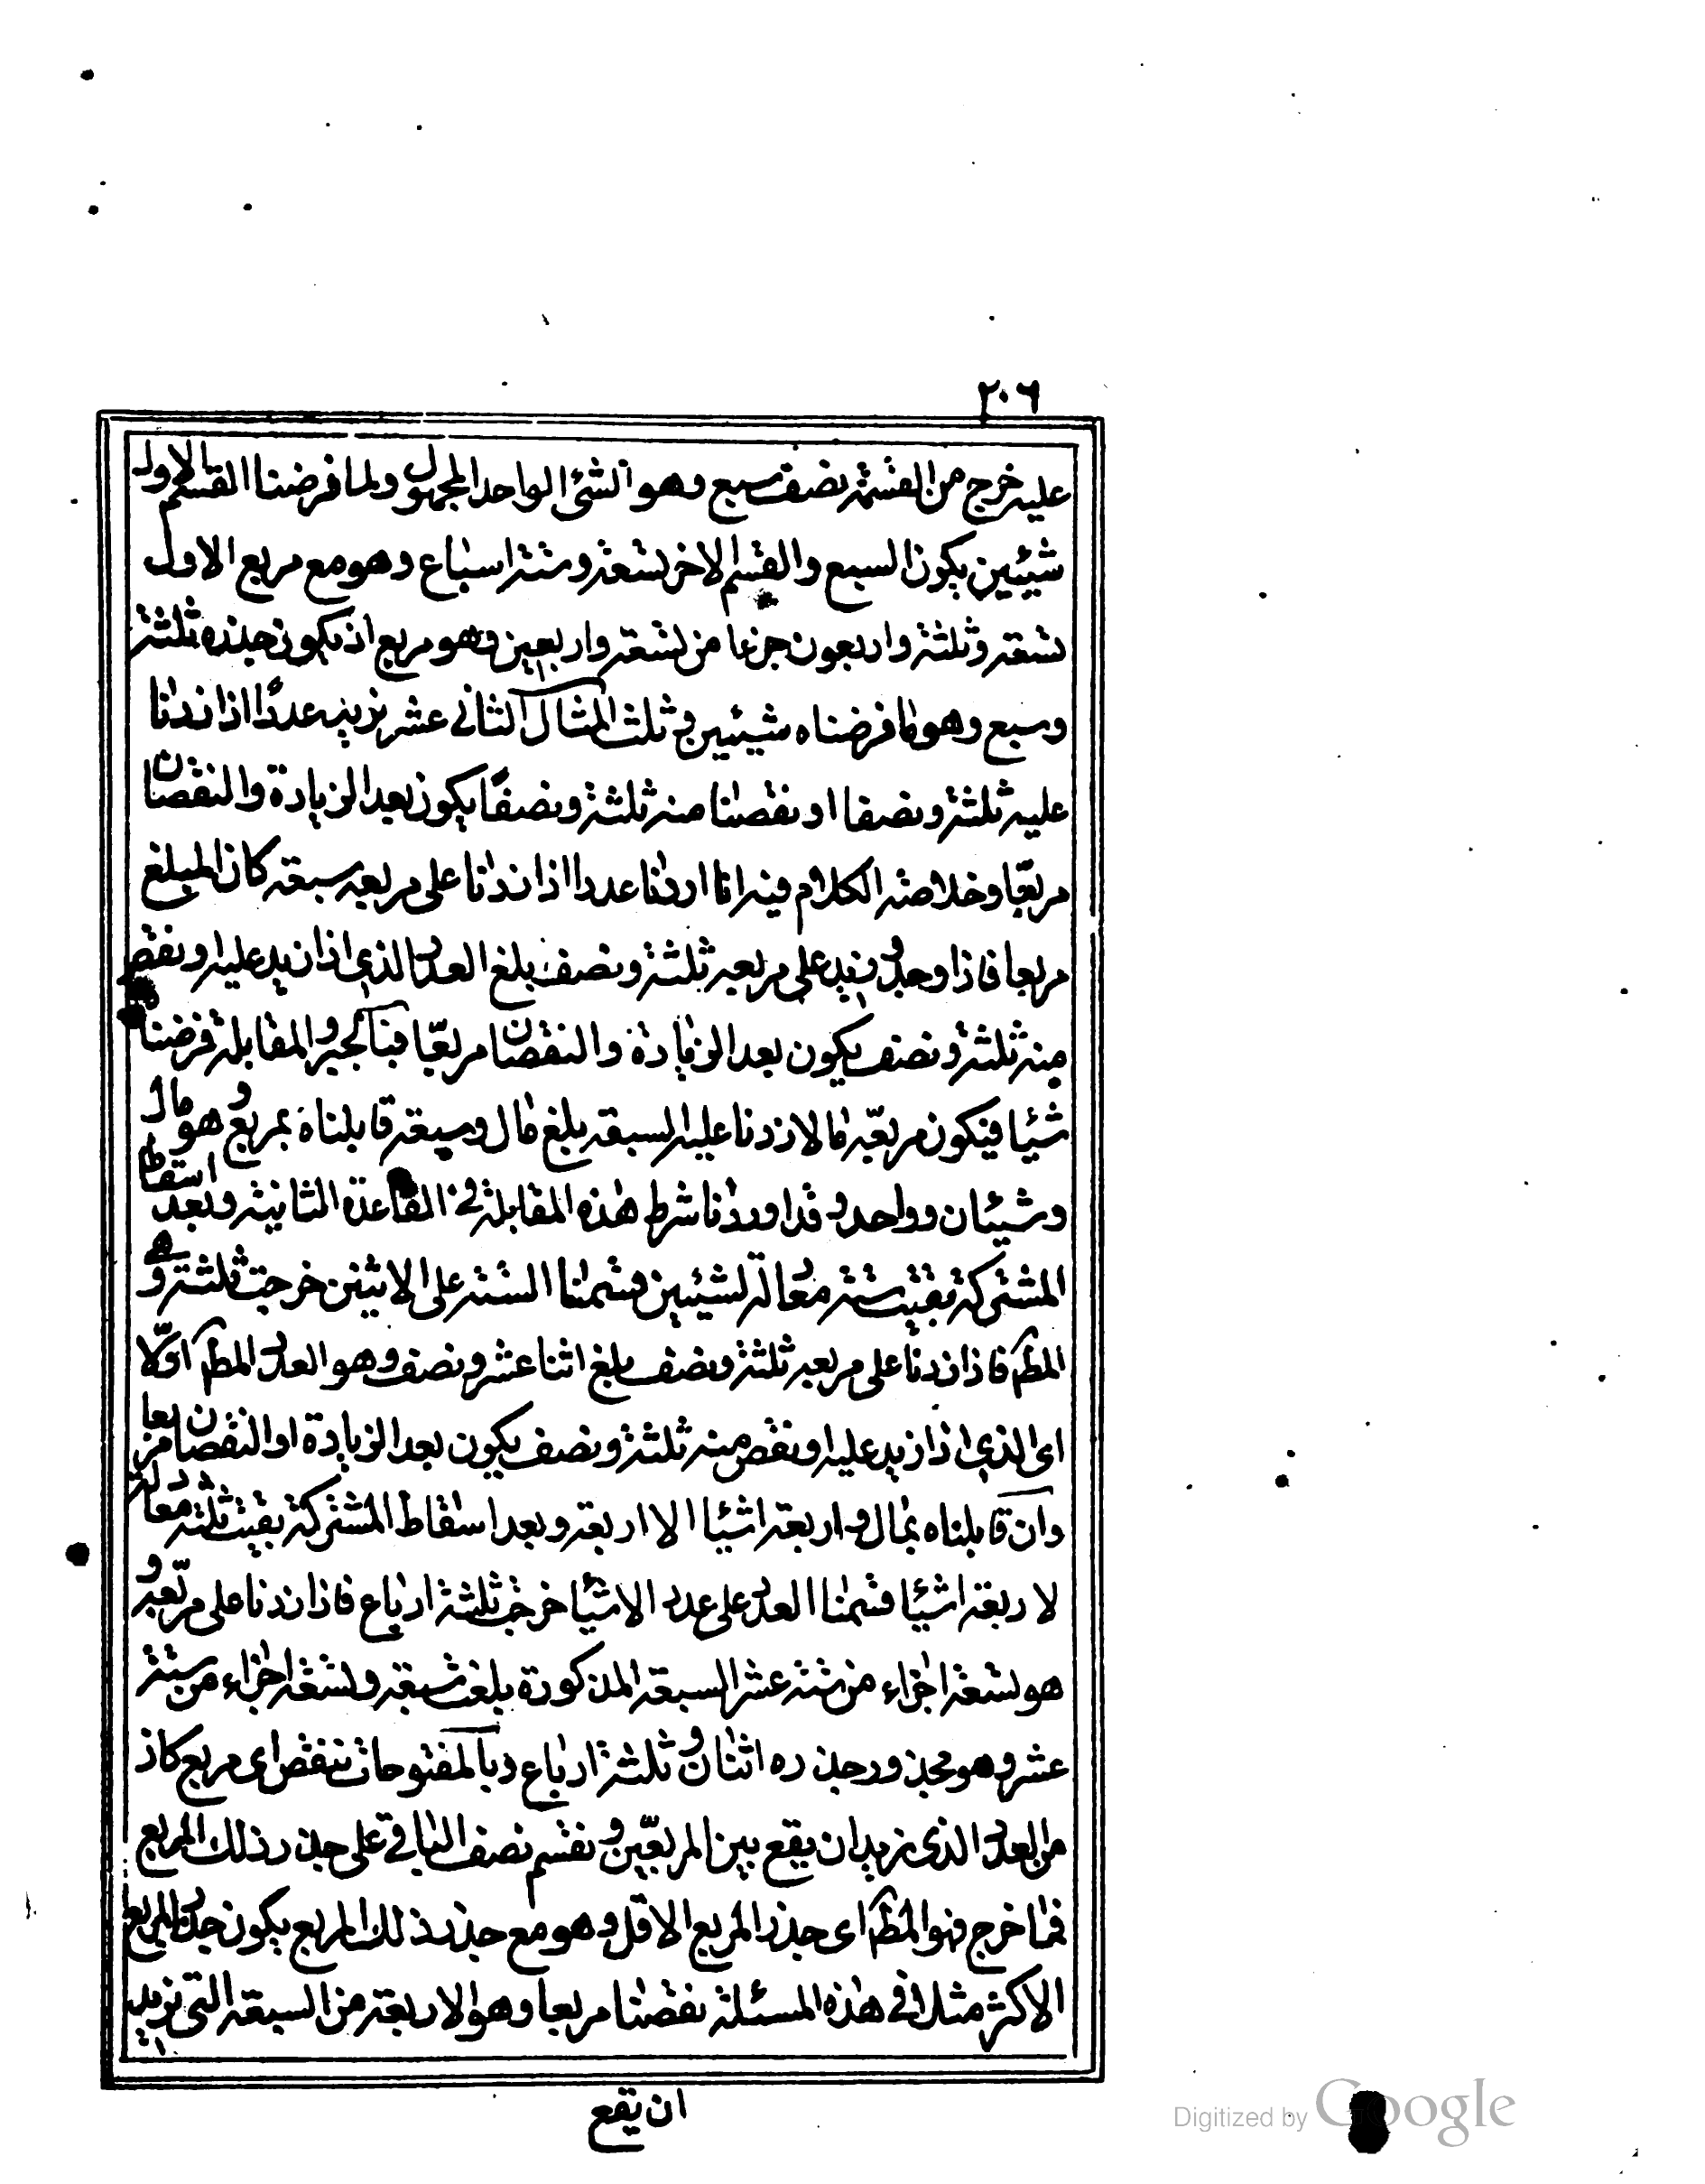 ٢٠٦
عليه خرج من القسمة نصف سبع وهو الشئ الواحد المجهول ولما فرضنا القسم الاول
شيئين يكون السبع والقسم الاخر تسعة وستة اسباع وهو مع مربع الاول
تسعة وثلثة واربعون جزءا من تسعة واربعين وهو مربع اذ يكون جذره ثلثة
وسبع وهو ما فرضناه شيئين و ثلث المثال الثانى عشر نريد عددًا اذا زدنا
عليه ثلثة ونصفا او نقصنا منه ثلثة ونصفًا يكون بعد الزيادة والنقصان
مربعًا وخلاصة الكلام فيه انا اردنا عددا اذا زدنا على مربعه سبعة كان المبلغ
مربعا فاذا وجد و زيد على مربعه ثلثة ونصف بلغ العدد الذى اذا زيد عليه او نقص
منه ثلثة ونصف يكون بعد الزيادة والنقصان مربعًا فبالجبر والمقابلة فرضناه
شيئا فيكون مربعه مالا زدنا عليه السبعة بلغ مال وسبعة قابلناه بمربع وهو مال
وشيئان وواحد وقد اوردنا شرط هذه المقابلة فى القاعدة الثانية وبعد اسقاط
المشتركة بقيت ستة معادلة لشيئين قسمنا الستة على الاثنين خرجت ثلثة وهى
المط فاذا زدنا على مربعه ثلثة ونصف بلغ اثنا عشر ونصف وهو العدد المط اوّلا
اى الذى اذا زيد عليه او نقص منه ثلثة ونصف يكون بعد الزيادة او النقصان مربعا
وان قابلناه بمال واربعة اشيا الا اربعة وبعد اسقاط المشتركة بقيت ثلثة معادلة
لاربعة اشيا قسمنا العدد على عدد الاشيا خرجت ثلثة ارباع فاذا زدنا على مربعه و
هو تسعة اجزاء من ستة عشر السبعة المذكورة بلغت سبعة وتسعة اجزاء من ستة
عشر وهو مجذور جذره اثنان و ثلثة ارباع وبالمفتوحات ننقص اى مربع كان
من العدد الذى نريد ان يقع بين المربعين و نقسم نصف الباقى على جذر ذلك المربع
فما خرج فهو المط اى جذر المربع الاقل وهو مع جذر ذلك المربع يكون جذر المربع
الاكثر مثلا فى هذه المسئلة نقصنا مربعا وهو الاربعة من السبعة التى نريد
ان يقع
Digitized by Google